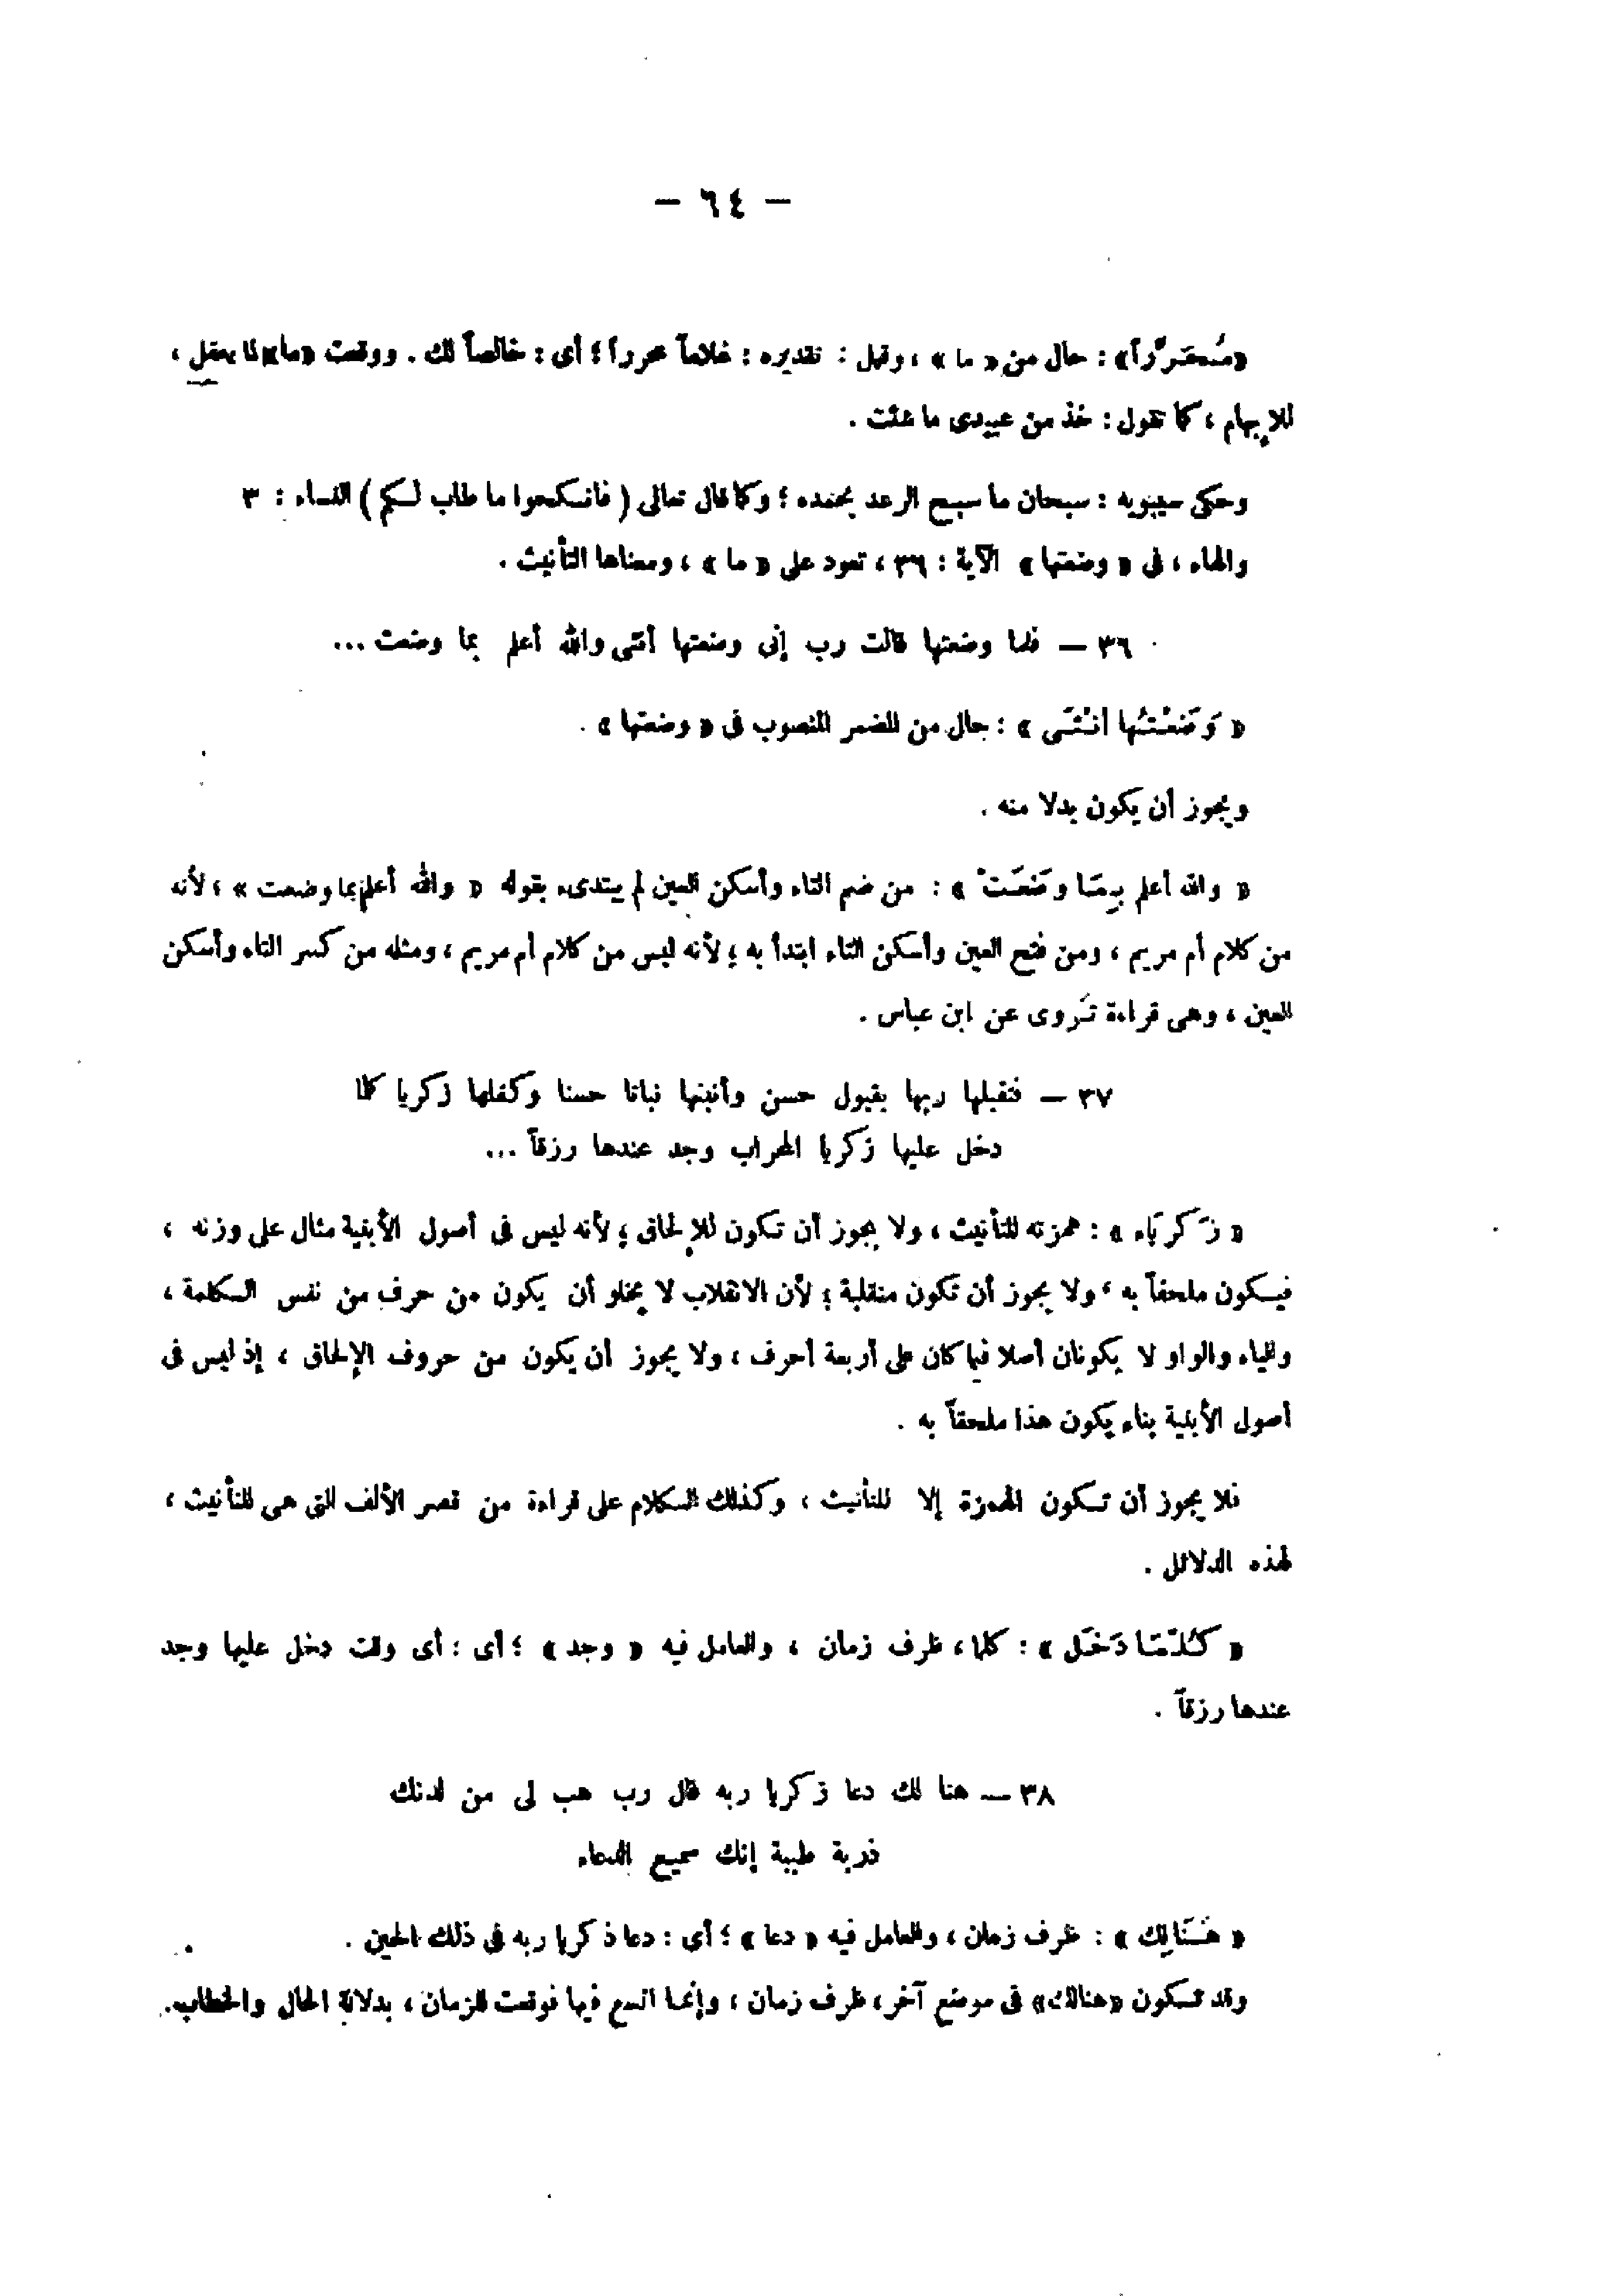 — ٦٤ —
«مُحَرَّراً» : حال من « ما » ، وقيل : تقديره : غلاماً محرراً ؛ أى : خالصاً لك . ووقعت «ما» لما يعقل ،
للإبهام ، كما تقول : خذ من عبيدى ما شئت .
وحكى سيبويه : سبحان ما سبح الرعد بحمده ؛ وكما قال تعالى ( فانكحوا ما طاب لكم ) النساء : ٣
والهاء ، فى « وضعتها » الآية : ٣٦ ، تعود على « ما » ، ومعناها التأنيث .
٣٦ — فلما وضعتها قالت رب إنى وضعتها أنثى والله أعلم بما وضعت ...
« وَضَعْتُها أنْثَى » : حال من المضمر المنصوب فى « وضعتها » .
ويجوز أن يكون بدلا منه .
« والله أعلم بِمَا وَضَعَتْ » : من ضم التاء وأسكن العين لم يبتدىء بقوله « والله أعلم بما وضعت » ؛ لأنه
من كلام أم مريم ، ومن فتح العين وأسكن التاء ابتدأ به ؛ لأنه ليس من كلام أم مريم ، ومثله من كسر التاء وأسكن
العين ، وهى قراءة تُروى عن ابن عباس .
٣٧ — فتقبلها ربها بقبول حسن وأنبتها نباتا حسنا وكفلها زكريا كلما
دخل عليها زكريا المحراب وجد عندها رزقاً ...
« زَكَرِيَّاء » : همزته للتأنيث ، ولا يجوز أن تكون للإلحاق ؛ لأنه ليس فى أصول الأبنية مثال على وزنه ،
فيكون ملحقاً به ، ولا يجوز أن تكون منقلبة ؛ لأن الانقلاب لا يخلو أن يكون من حرف من نفس الكلمة ،
والياء والواو لا يكونان أصلا فيما كان على أربعة أحرف ، ولا يجوز أن يكون من حروف الإلحاق ، إذ ليس فى
أصول الأبنية بناء يكون هذا ملحقاً به .
فلا يجوز أن تكون الهمزة إلا للتأنيث ، وكذلك الكلام على قراءة من قصر الألف التى هى للتأنيث ،
لهذه الدلائل .
« كُلَّمَا دَخَل » : كلما ، ظرف زمان ، والعامل فيه « وجد » ؛ أى : أى وقت دخل عليها وجد
عندها رزقاً .
٣٨ — هنا لك دعا زكريا ربه قال رب هب لى من لدنك
ذرية طيبة إنك سميع الدعاء
« هُنَالِك » : ظرف زمان ، والعامل فيه « دعا » ؛ أى : دعا ذكريا ربه فى ذلك الحين .
وقد تكون «هنالك» فى موضع آخر ، ظرف زمان ، وإنما اتسع فيها فوقعت للزمان ، بدلالة الحال والخطاب.